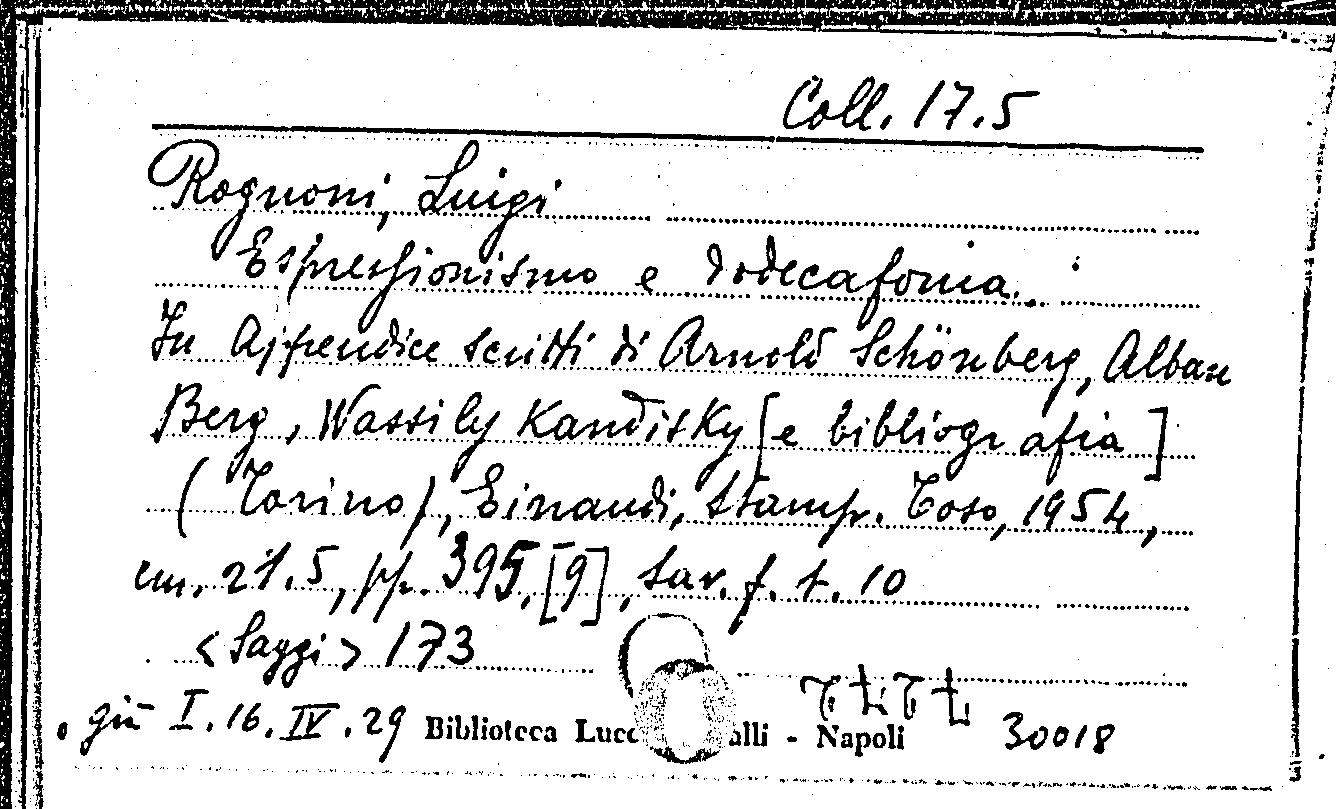 Coll. 17.5
Rognoni, Luigi
Espressionismo e dodecafonia.
In Appendice scritti di Arnold Schönberg, Alban
Berg, Wassily Kandisky [e bibliografia]
(Torino), Einaudi, stamp. Toso, 1954,
cm. 21.5, pp. 395, [9], tav. f. t. 10
<Saggi> 173
già I.16.IV.29 Biblioteca Lucc alli - Napoli 30018